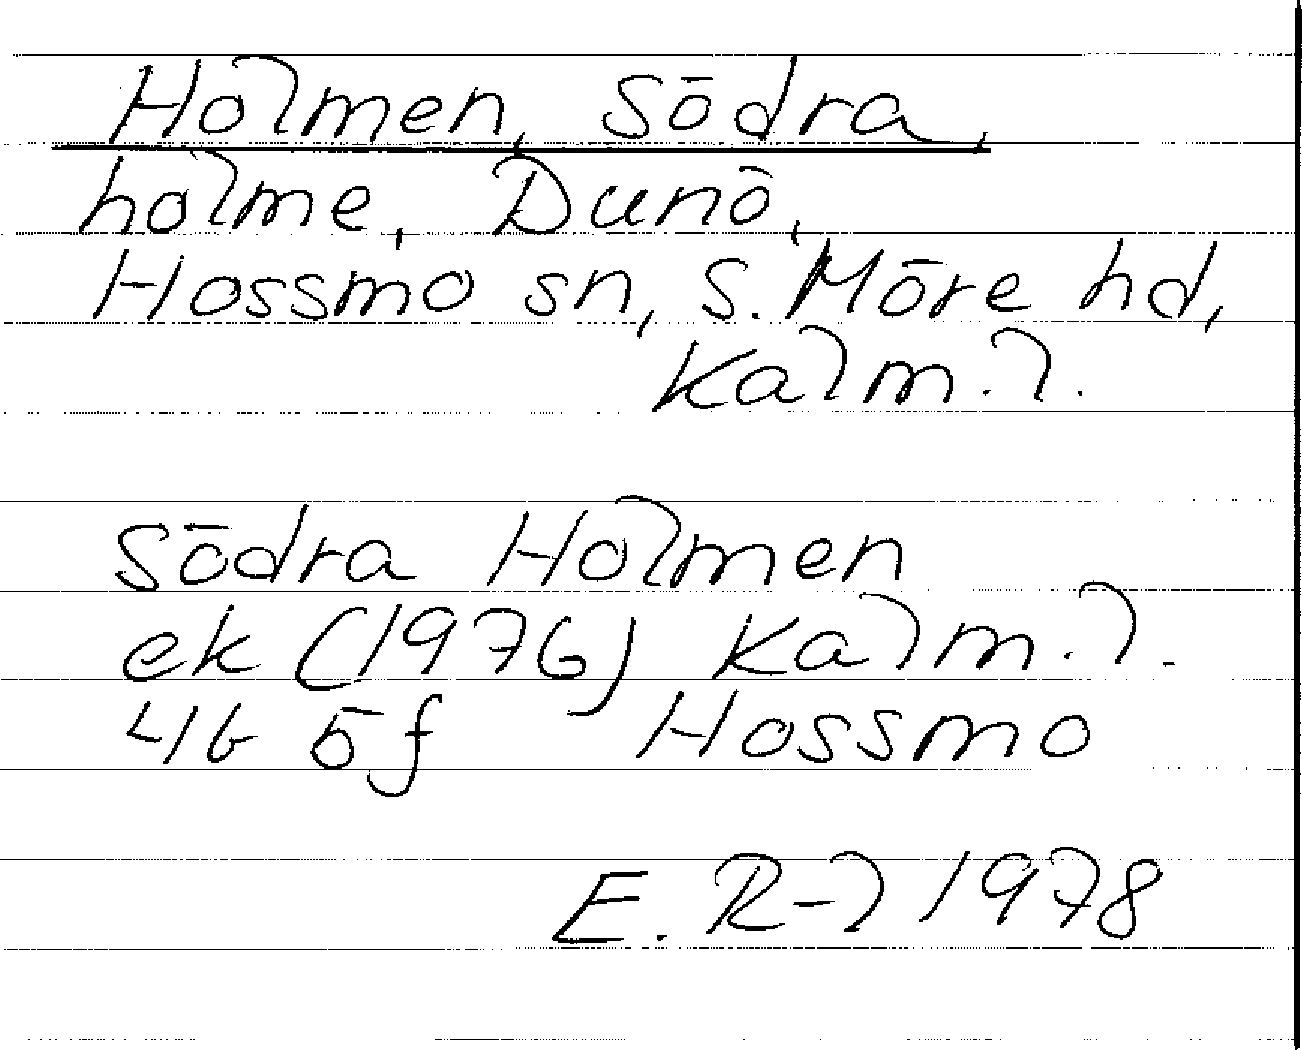 Holmen, Södra,
holme, Dunö,
Hossmo sn, S. Möre hd,
Kalm. l.
Södra Holmen
ek (1976) Kalm. l.
4G 5f Hossmo
E. R-l 1978